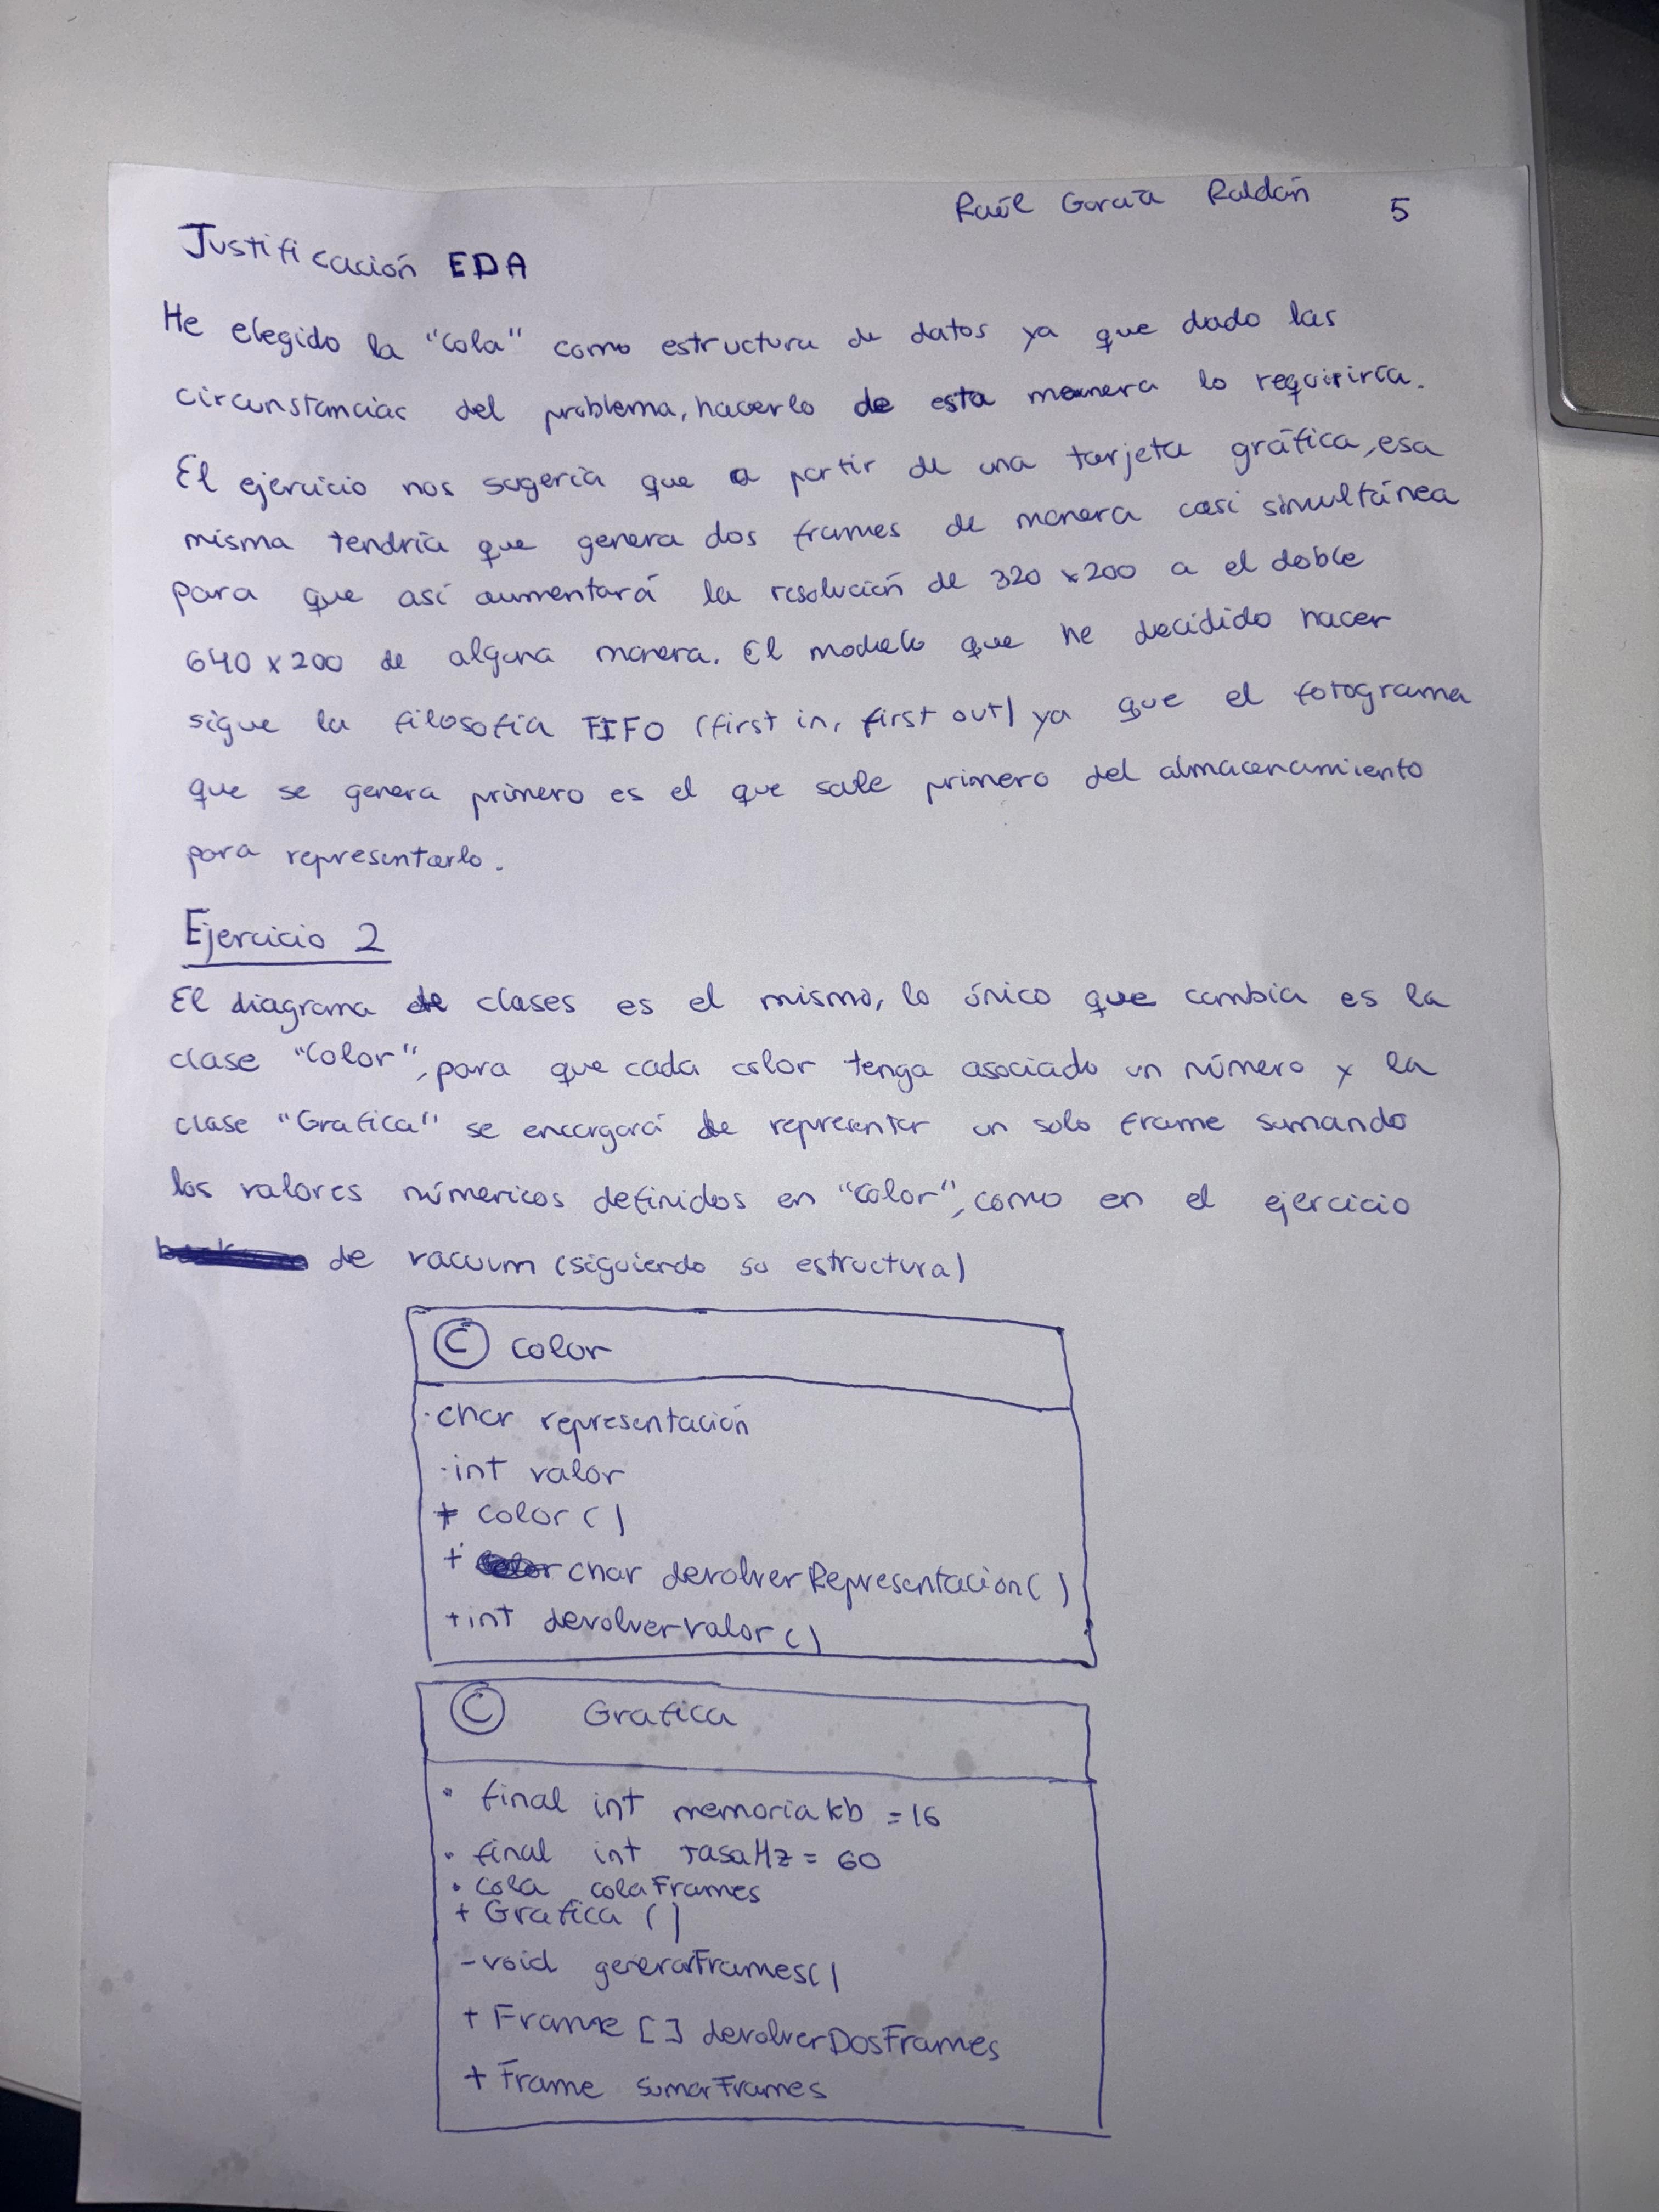 Raúl García Roldán 5
Justificación EDA
He elegido la "Cola" como estructura de datos ya que dado las
circunstancias del problema, hacerlo de esta manera lo requiriría.
El ejercicio nos sugería que a partir de una tarjeta gráfica, esa
misma tendría que genera dos frames de manera casi simultánea
para que así aumentará la resolución de 320 x 200 a el doble
640 x 200 de alguna manera. El modelo que he decidido hacer
sigue la filosofía FIFO (first in, first out) ya que el fotograma
que se genera primero es el que sale primero del almacenamiento
para representarlo.
Ejercicio 2
El diagrama de clases es el mismo, lo único que cambia es la
clase "Color", para que cada color tenga asociado un número y la
clase "Grafica" se encargará de representar un solo frame sumando
los valores númericos definidos en "Color", como en el ejercicio
de vacuum (siguiendo su estructura)
C Color
· char representación
· int valor
+ Color ()
+ char devolverRepresentacion()
+ int devolverValor()
C Grafica
· final int memoriakb = 16
· final int tasaHz = 60
· Cola colaFrames
+ Grafica ()
- void generarFrames()
+ Frame [] devolverDosFrames
+ Frame sumarFrames